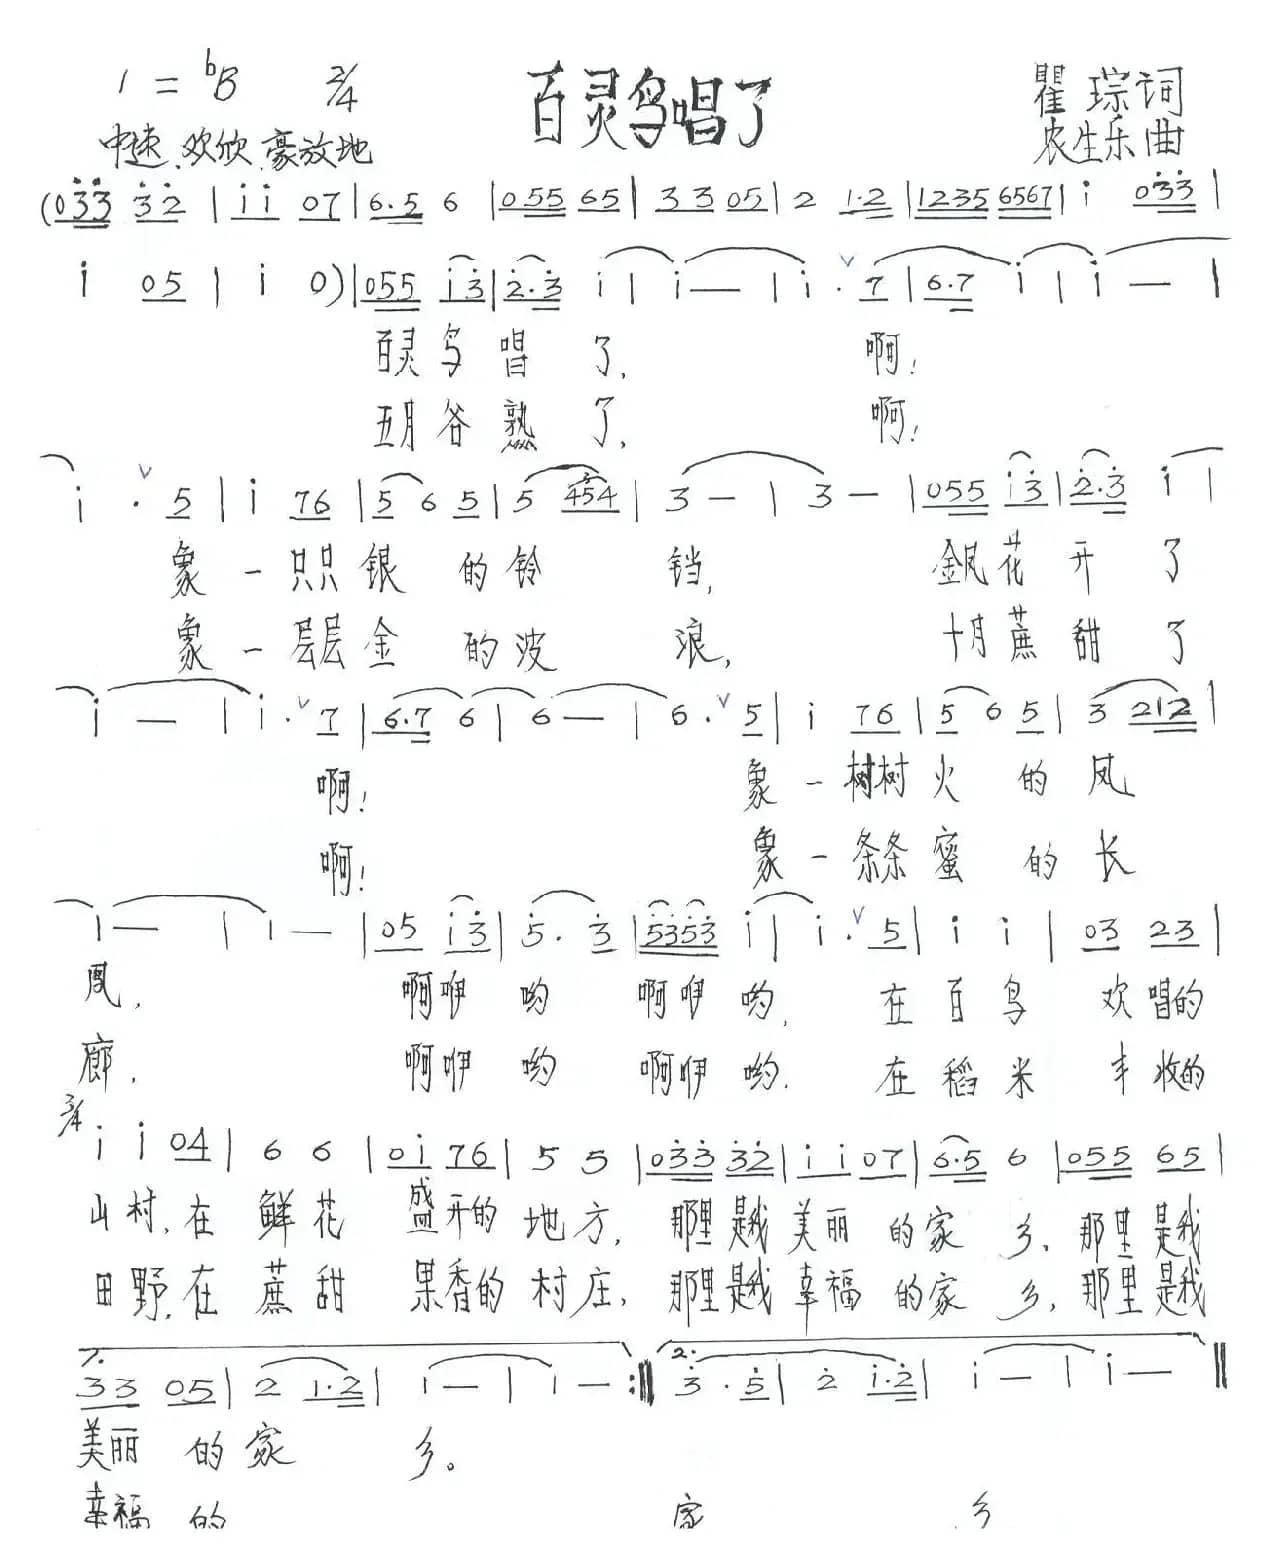 1 = ♭B 2/4 百灵鸟唱了 瞿琮词
中速、欢欣、豪放地 农生乐曲
(033 32 | 11 07 | 6.5 6 | 055 65 | 33 05 | 2 1.2 | 1235 6567 | i 033 |
i 05 | i 0) | 055 i3 | 2.3 i | i — | i . 7 | 6.7 i | i — |
百灵鸟唱了, 啊!
五月谷熟了, 啊!
i . 5 | i 76 | 5 6 5 | 5 454 | 3 — | 3 — | 055 i3 | 2.3 i |
象一只只银的铃铛, 金凤花开了
象一层层金的波浪, 十月蔗甜了
i — | i . 7 | 6.7 6 | 6 — | 6 . 5 | i 76 | 5 6 5 | 3 212 |
啊! 象一树树火的凤
啊! 象一条条蜜的长
i — | i — | 05 i3 | 5 . 3 | 5353 i | i . 5 | i i | 03 23 |
凰, 啊咿哟 啊咿哟, 在百鸟欢唱的
廊, 啊咿哟 啊咿哟. 在稻米丰收的
3/4 i i 04 | 6 6 | 0i 76 | 5 5 | 033 32 | i i 07 | 6.5 6 | 055 65 |
山村, 在鲜花盛开的地方, 那里是我美丽的家乡, 那里是我
田野, 在蔗甜果香的村庄, 那里是我幸福的家乡, 那里是我
1. 33 05 | 2 1.2 | i — | i — :‖ 2. 3 . 5 | 2 i.2 | i — | i — ‖
美丽的家乡。
幸福的家乡